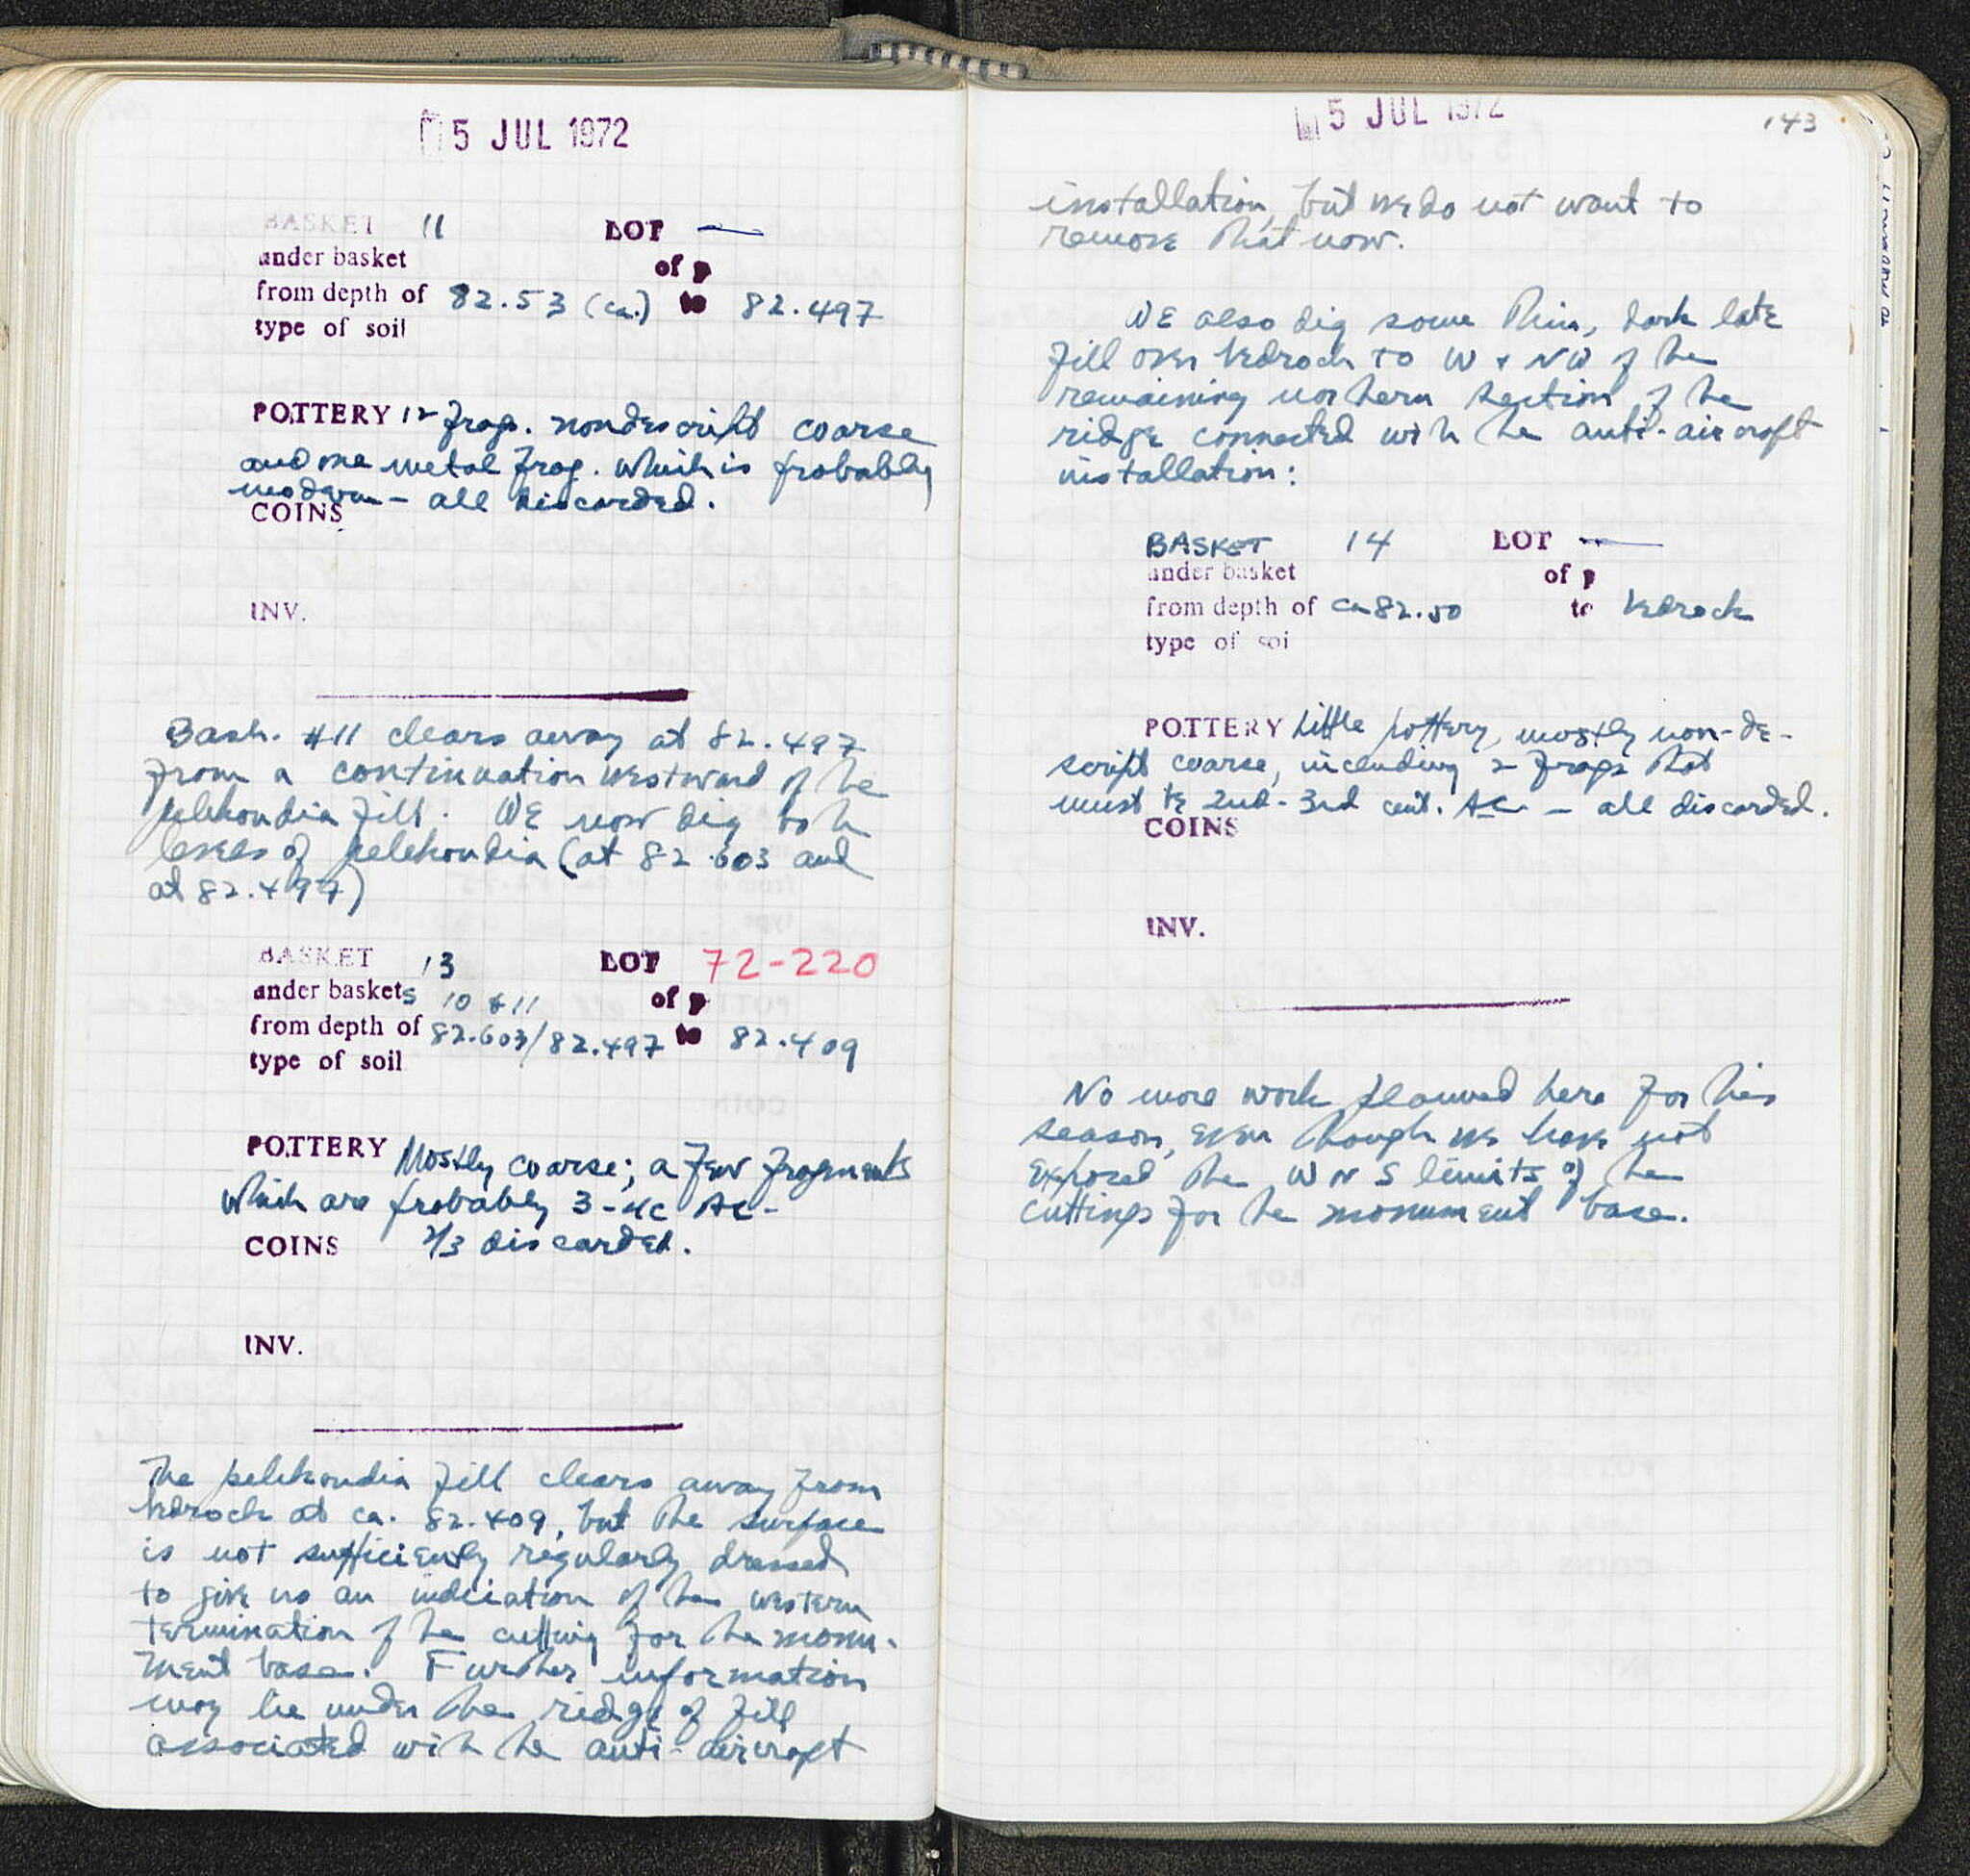 5 JUL 1972
BASKET 11 LOT —
under basket of p
from depth of 82.53 (ca.) to 82.497
type of soil
POTTERY 12 frags. nondescript coarse
and one metal frag. which is probably
modern – all discarded.
COINS
INV.
Bask. #11 clears away at 82.497
from a continuation westward of the
pelekoudia fill. We now dig both
levels of pelekoudia (at 82.603 and
at 82.497)
BASKET 13 LOT 72-220
under baskets 10 & 11 of p
from depth of 82.603/82.497 to 82.409
type of soil
POTTERY Mostly coarse; a few fragments
which are probably 3-4c AC –
COINS 2/3 discarded.
INV.
The pelekoudia fill clears away from
bedrock at ca. 82.409, but the surface
is not sufficiently regularly dressed
to give us an indication of the western
termination of the cutting for the monu-
ment base. Further information
may lie under the ridge of fill
associated with the anti-aircraft
5 JUL 1972
143
installation, but we do not want to
remove that now.
We also dig some thin, dark late
fill over bedrock to W & NW of the
remaining northern section of the
ridge connected with the anti-aircraft
installation:
BASKET 14 LOT —
under basket of p
from depth of ca 82.50 to bedrock
type of soi
POTTERY Little pottery, mostly non-de-
script coarse, including 2 frags that
must be 2nd-3rd cent. AC – all discarded.
COINS
INV.
No more work planned here for this
season, even though we have not
exposed the W N S limits of the
cuttings for the monument base.